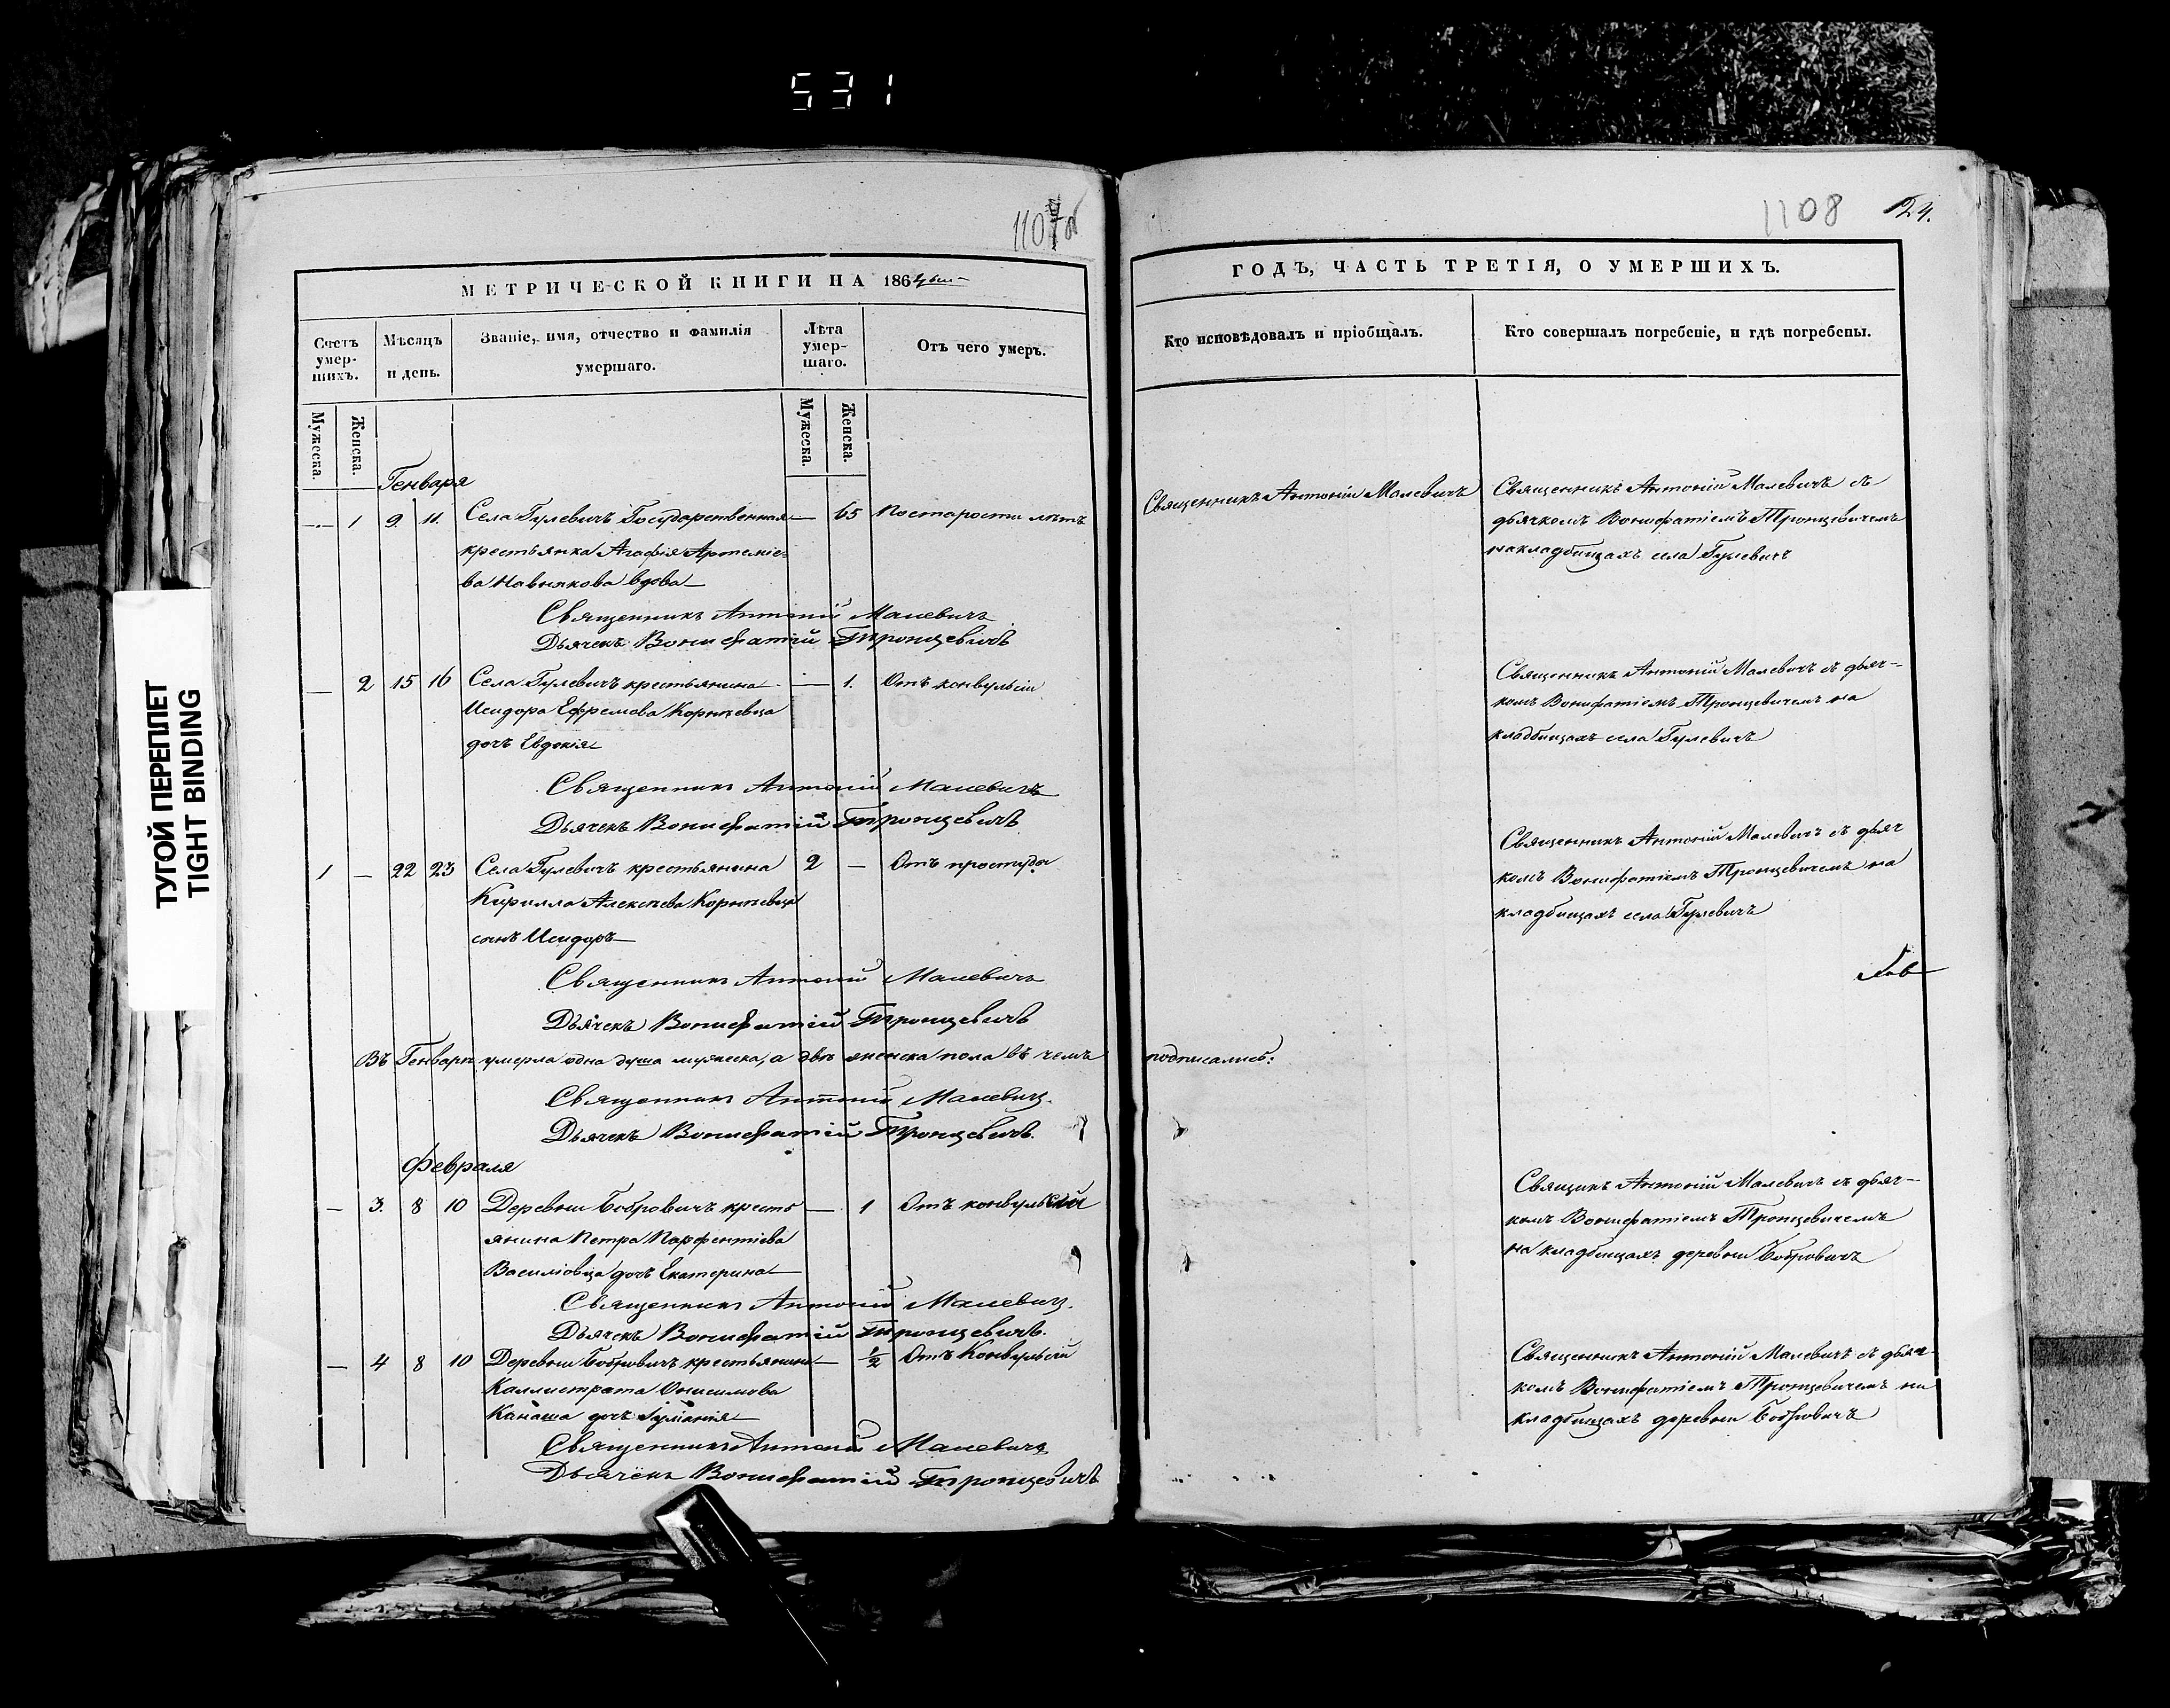 531
1108 124.
ТУГОЙ ПЕРЕПЛЕТ
TIGHT BINDING
МЕТРИЧЕСКОЙ КНИГИ НА 186
Счетъ умер-шихъ.
Мѣсяцъ и день.
Званіе, имя, отчество и фамилія умершаго.
Лѣта умер-шаго.
Отъ чего умеръ.
Мужеска. Женска. Мужеска. Женска.
Генваря
— 1 9. 11. Села Гулевичъ Государственная — 65 По старости лѣтъ
крестьянка Агафія Артеміе-
ва вдова
Священникъ Антоній Малевичъ
Дьячекъ Вонифатій Тронцевичъ
— 2 15 16 Села Гулевичъ крестьянина — 1. Отъ конвульсіи
Исидора Ефремова Корнѣевца
дочь Евдокія
Священникъ Антоній Малевичъ
Дьячекъ Вонифатій Тронцевичъ
1 — 22 23 Села Гулевичъ крестьянина 2 — Отъ простуды
Кирилла Алексѣева Корнѣевца
сынъ Исидоръ
Священникъ Антоній Малевичъ
Дьячекъ Вонифатій Тронцевичъ
Въ Генварѣ умерла одна душа мужеска, а двѣ женска пола въ чемъ
Священникъ Антоній Малевичъ.
Дьячекъ Вонифатій Тронцевичъ.
Февраля
— 3. 8 10 Деревни Бобровичъ кресть — 1 Отъ конвульсій
янина Петра Парфентіева
Василіовца дочъ Екатерина
Священникъ Антоній Малевичъ.
Дьячекъ Вонифатій Тронцевичъ.
— 4 8 10 Деревни Бобровичъ крестьянина — 1/2 Отъ Конвульсій
Каллистрата Онисимова
Канаша дочъ Іуліанія
Священникъ Антоній Малевичъ
Дьячекъ Вонифатій Тронцевичъ
ГОДЪ, ЧАСТЬ ТРЕТІЯ, О УМЕРШИХЪ.
Кто исповѣдовалъ и пріобщалъ.
Кто совершалъ погребеніе, и гдѣ погребены.
Священникъ Антоній Малевичъ
Священникъ Антоній Малевичъ съ
дьячкомъ Вонифатіемъ Тронцевичемъ
на кладбищахъ села Гулевичъ
Священникъ Антоній Малевичъ съ дьяч-
комъ Вонифатіемъ Тронцевичемъ на
кладбищахъ села Гулевичъ
Священникъ Антоній Малевичъ съ дьяч
комъ Вонифатіемъ Тронцевичемъ на
кладбищахъ села Гулевичъ
подписались:
Свящикъ Антоній Малевичъ съ дьяч-
комъ Вонифатіемъ Тронцевичемъ
на кладбищахъ деревни Бобровичъ
Священникъ Антоній Малевичъ съ дьяч-
комъ Вонифатіемъ Тронцевичемъ на
кладбищахъ деревни Бобровичъ